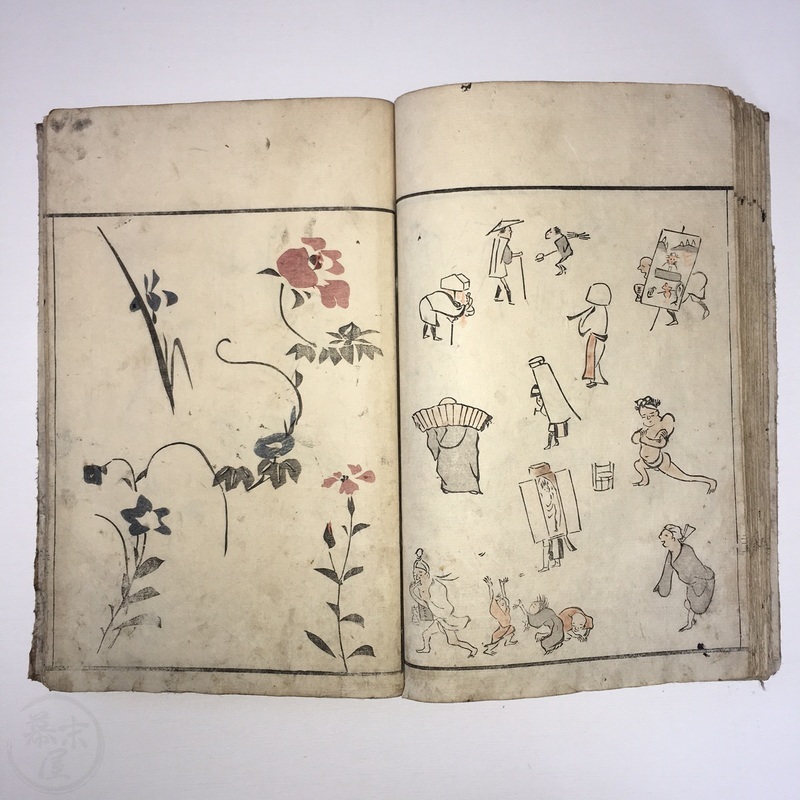 幕末
屋